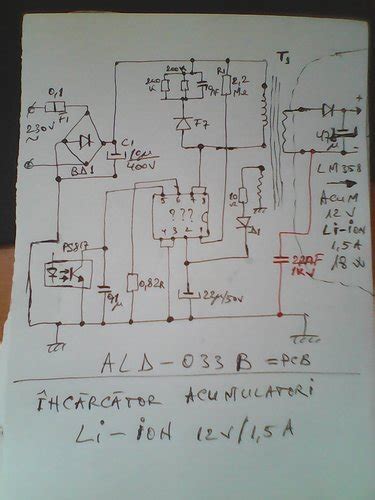 T1
0,1
F1
230V
~
BD1
C1
10µ
400V
200K
R1
2,2
MΩ
F7
5 6 7 8
???
4 3 2 1
10
Ω
D1
PS817
0,1µ
0,82Ω
22µ/50V
+
47µ
-
LM358
ACUM
12V
Li-ION
1,5A
18W
1KV
ALD-033B = PCB
ÎNCĂRCĂTOR ACUMULATORI
Li-ION 12V/1,5A